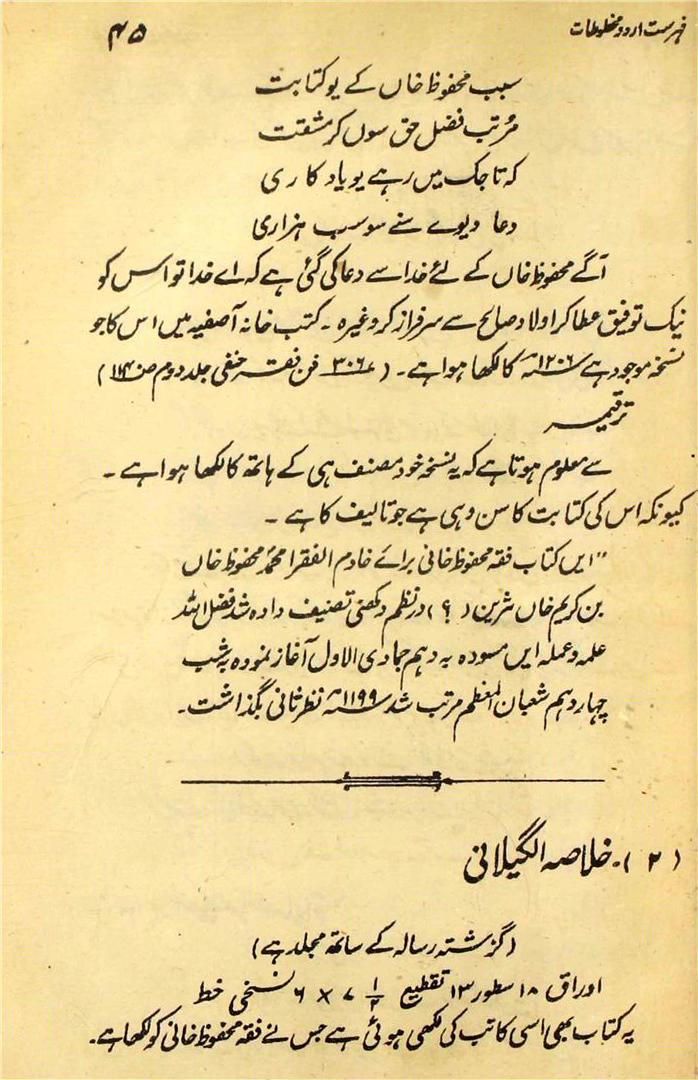 فہرست اردو مخطوطات ۴۵
سبب محفوظ خاں کے یو کتابت
مُرتب فضل حق سوں کر مشقت
کہ تا جگ میں رہے یو یاد کاری
دعا دیوے سنے سو سب ہزاری
آگے محفوظ خاں کے لئے خدا سے دعا کی گئی ہے کہ اے خدا تو اس کو
نیک توفیق عطا کر اولاد صالح سے سرفراز کر وغیرہ ۔ کتب خانہ آصفیہ میں اس کا جو
نسخہ موجود ہے ۱۲۰۶ھ کا لکھا ہوا ہے ۔ ( ۳۰۶ فن فقہ حنفی جلد دوم ص۱۱۴۰ )
ترقیمہ
سے معلوم ہوتا ہے کہ یہ نسخہ خود مصنف ہی کے ہاتھ کا لکھا ہوا ہے ۔
کیونکہ اس کی کتابت کا سن وہی ہے جو تالیف کا ہے ۔
"ایں کتاب فقہ محفوظ خانی برائے خادم الفقرا محمد محفوظ خاں
بن کریم خاں شرین ( ؟ ) در نظم دکھنی تصنیف دادہ شد فضل اللہ
علمہ و عملہ ایں مسودہ بہ دہم جمادی الاول آغاز نمودہ بہ شب
چہار دہم شعبان المعظم مرتب شد ۱۱۹۹ھ نظر ثانی بگذاشت ۔
( ۲ ) ۔ خلاصہ الگیلانی
( گزشتہ رسالہ کے ساتھ مجلد ہے )
اوراق ۱۸ سطور ۱۳ تقطیع ۷ ۱/۲ × ۶ نسخی خط
یہ کتاب بھی اسی کاتب کی لکھی ہوئی ہے جس نے فقہ محفوظ خانی کو لکھا ہے ۔